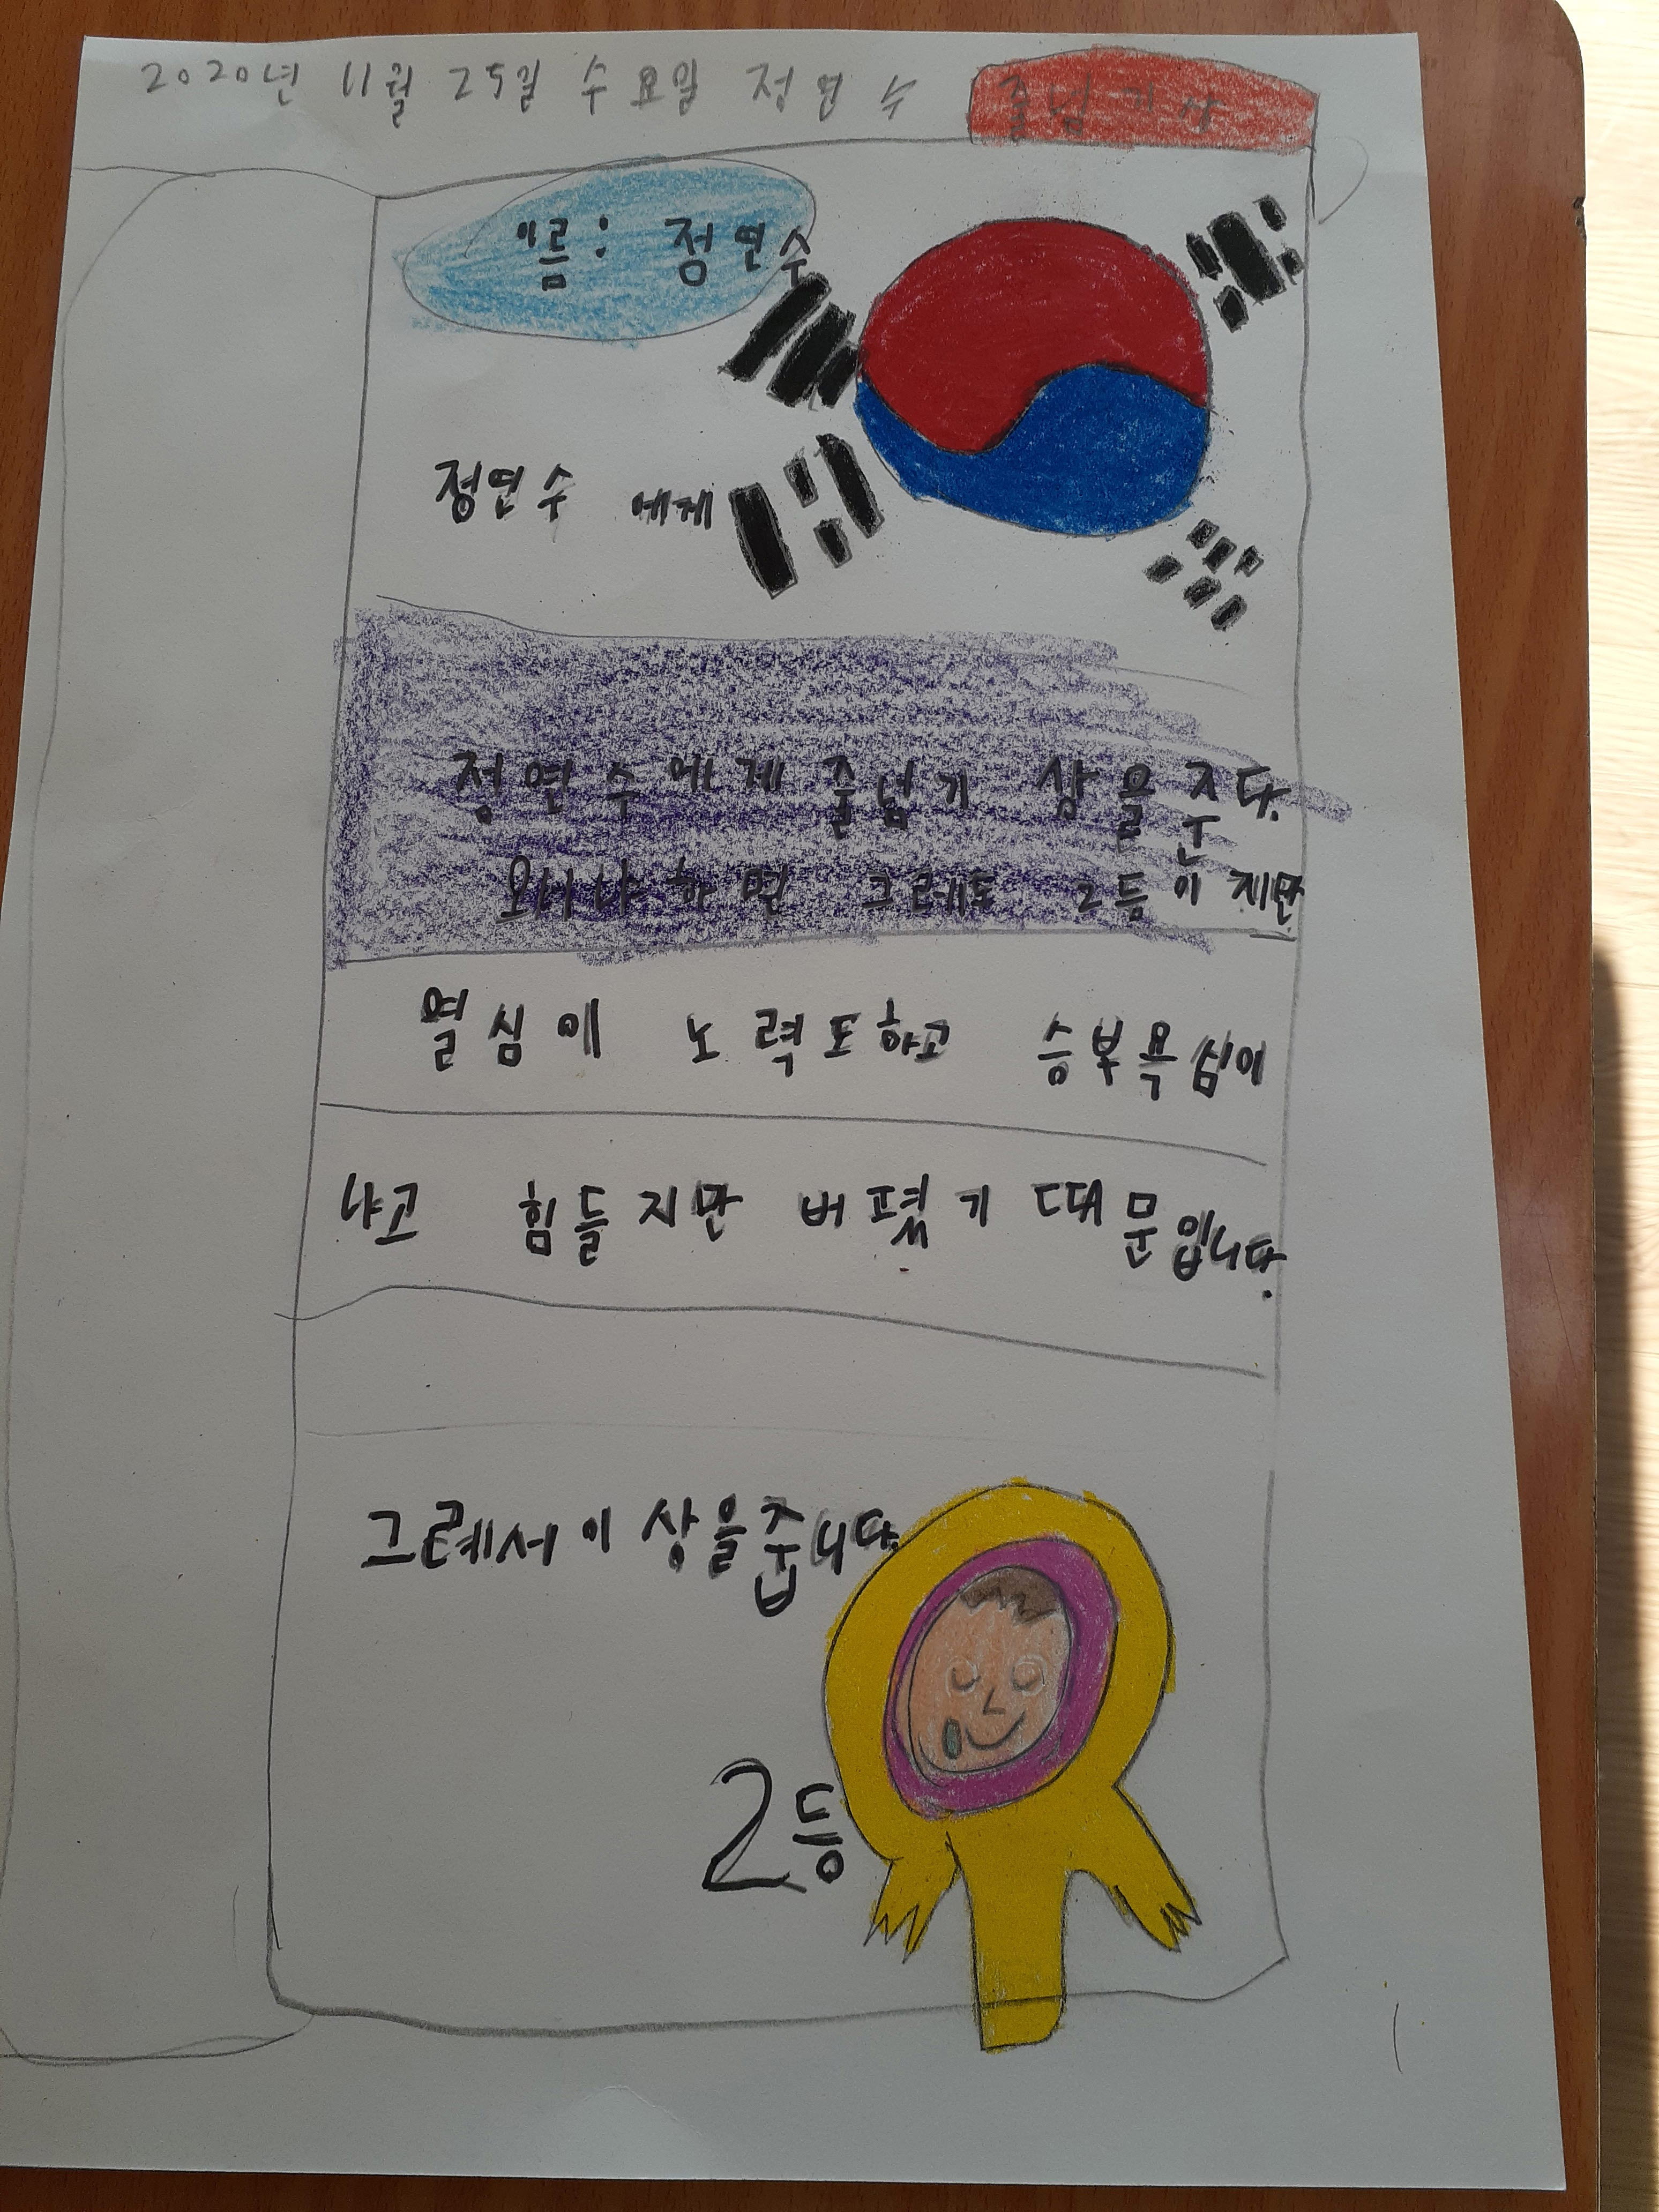 2020년 11월 25일 수요일 정연수 줄넘기상
이름: 정연수
정연수 에게
정연수에게 줄넘기 상을 준다.
그레도 2등이지만
열심애 노력도하고 승부욕심이
나고 힘들지만 버폈기 때문입니다.
그레서 이 상을 줍니다.
2등